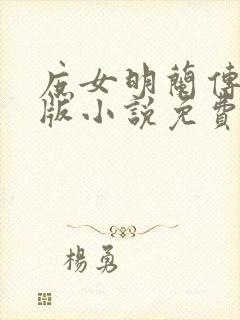 庶女明蘭傳
版小說免費
楊勇